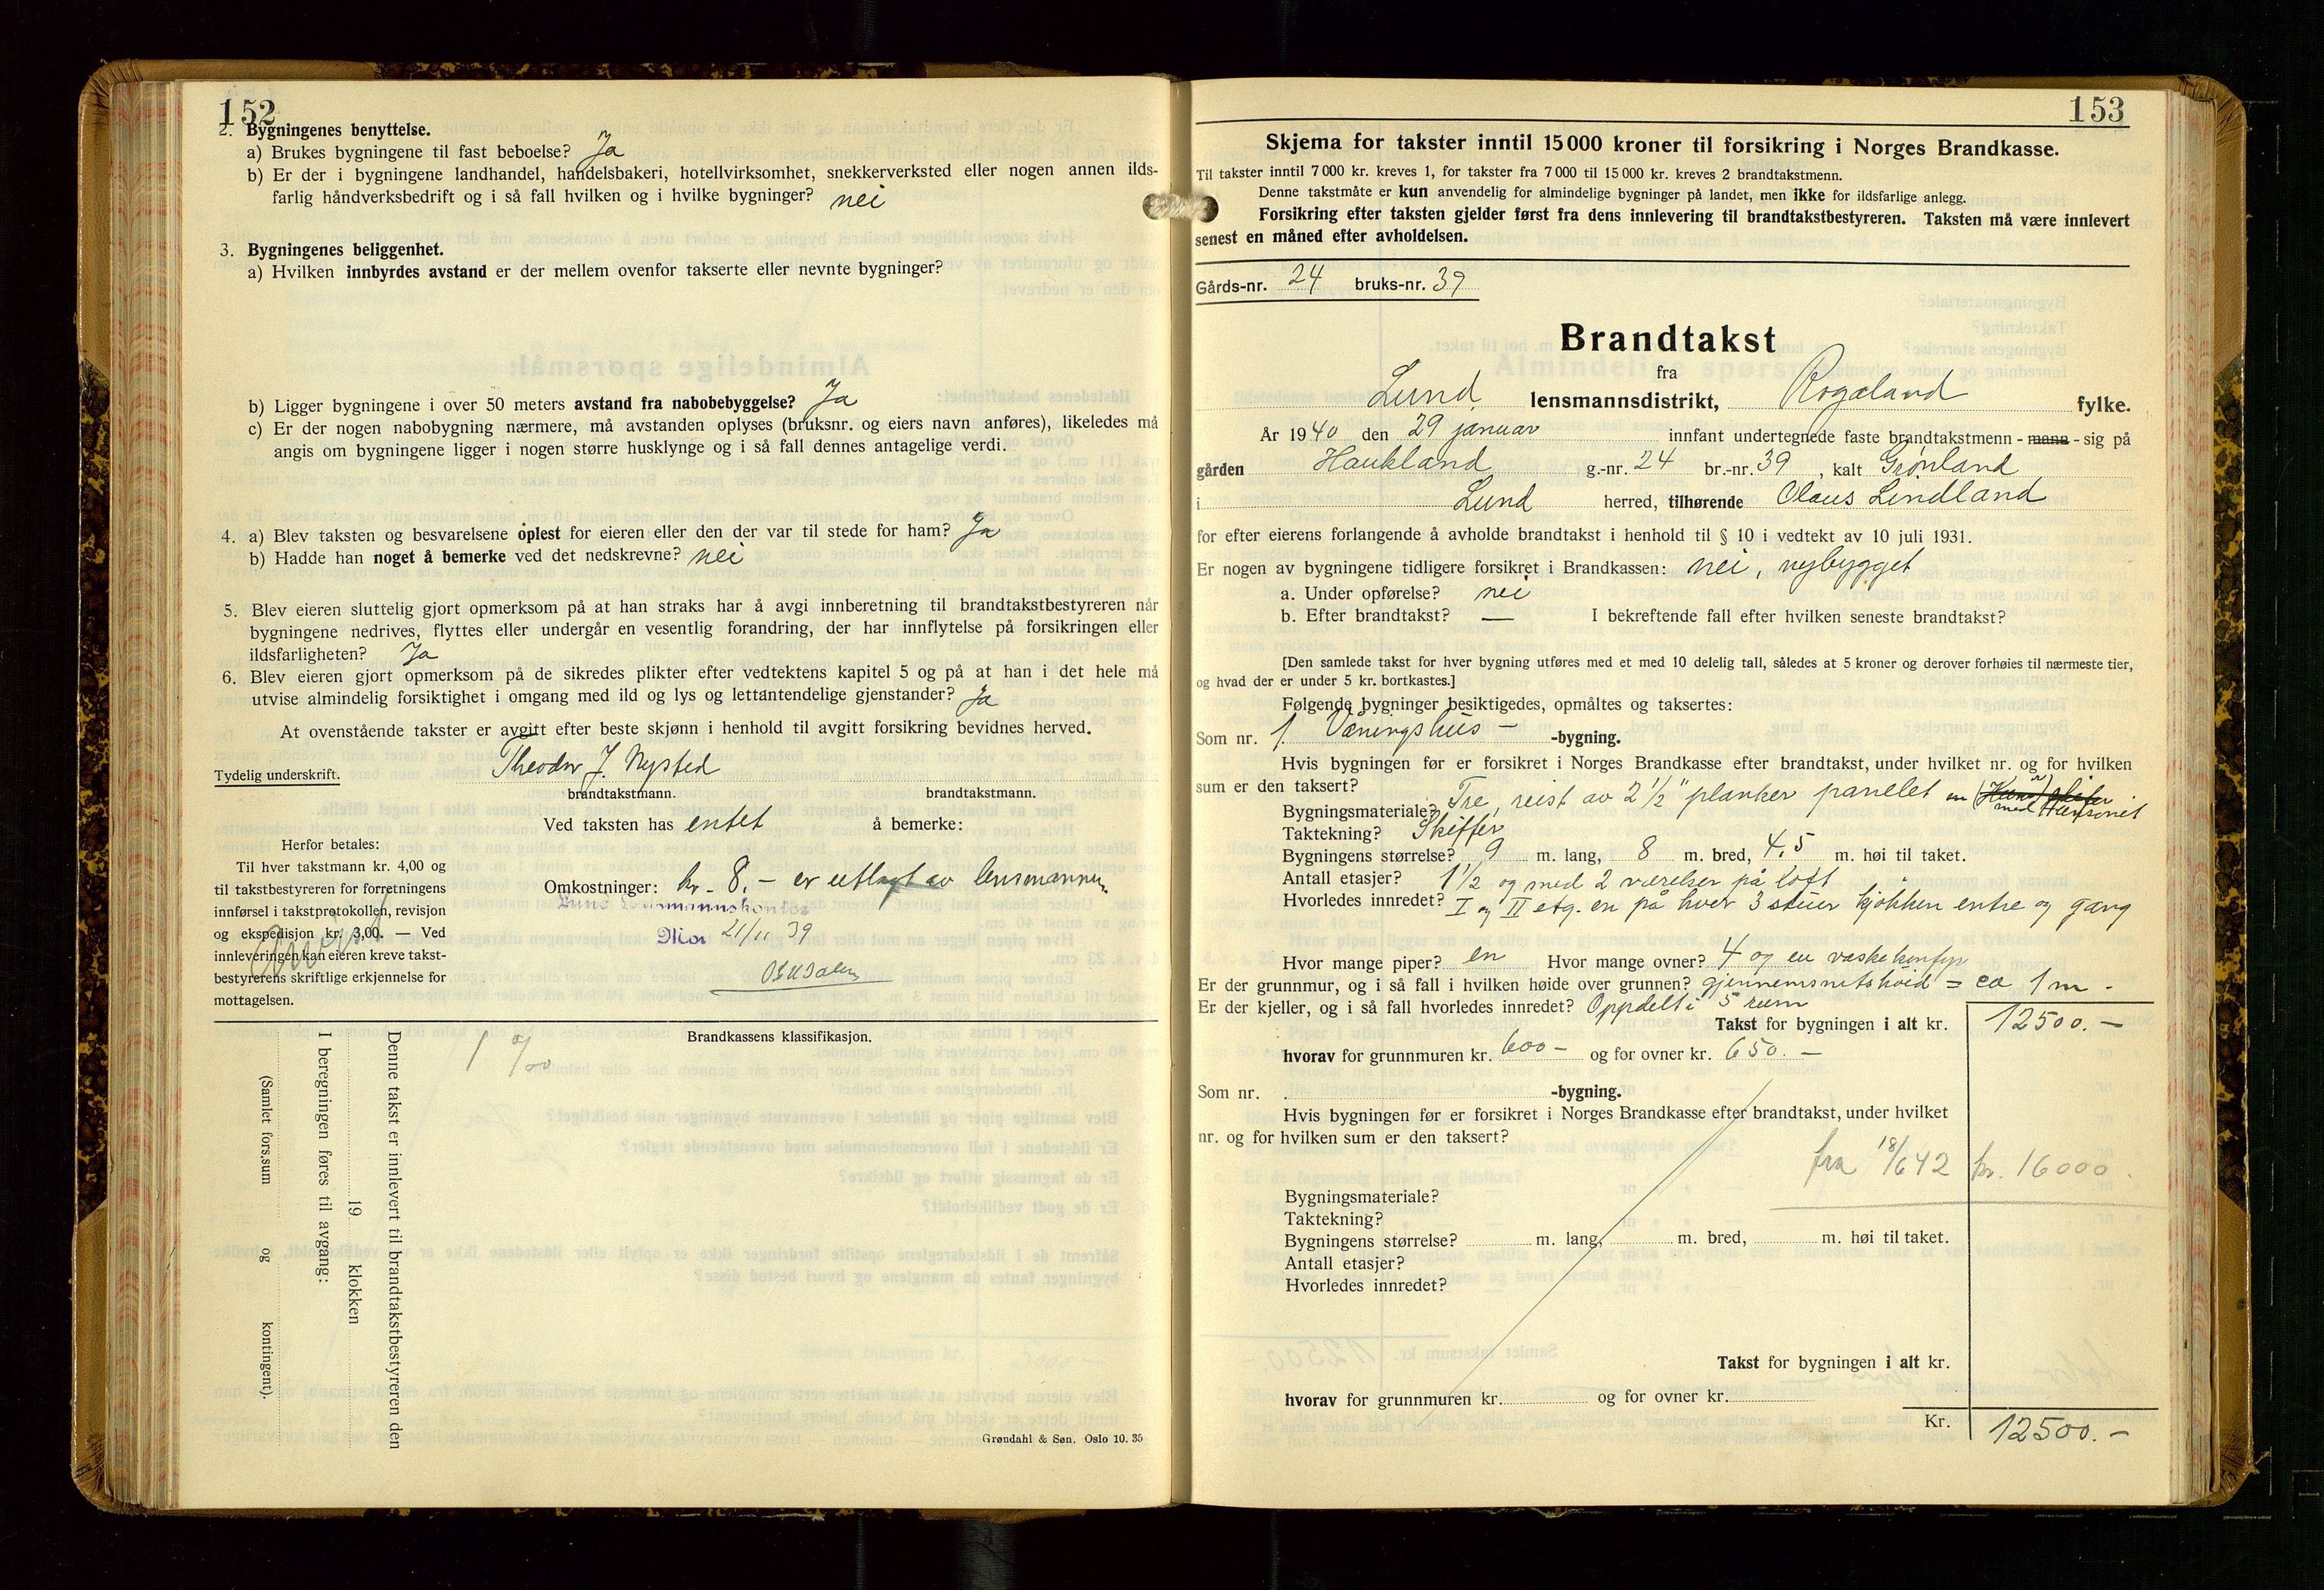 152
2. Bygningenes benyttelse.
a) Brukes bygningene til fast beboelse? Ja
b) Er der i bygningene landhandel, handelsbakeri, hotellvirksomhet, snekkerverksted eller nogen annen ilds-
farlig håndverksbedrift og i så fall hvilken og i hvilke bygninger? nei
3. Bygningenes beliggenhet.
a) Hvilken innbyrdes avstand er der mellem ovenfor takserte eller nevnte bygninger?
b) Ligger bygningene i over 50 meters avstand fra nabobebyggelse? Ja
c) Er der nogen nabobygning nærmere, må avstanden oplyses (bruksnr. og eiers navn anføres), likeledes må
angis om bygningene ligger i nogen større husklynge og i så fall dennes antagelige verdi.
4. a) Blev taksten og besvarelsene oplest for eieren eller den der var til stede for ham? Ja
b) Hadde han noget å bemerke ved det nedskrevne? nei
5. Blev eieren sluttelig gjort opmerksom på at han straks har å avgi innberetning til brandtakstbestyreren når
bygningene nedrives, flyttes eller undergår en vesentlig forandring, der har innflytelse på forsikringen eller
ildsfarligheten? Ja
6. Blev eieren gjort opmerksom på de sikredes plikter efter vedtektens kapitel 5 og på at han i det hele må
utvise almindelig forsiktighet i omgang med ild og lys og lettantendelige gjenstander? Ja
At ovenstående takster er avgitt efter beste skjønn i henhold til avgitt forsikring bevidnes herved.
Tydelig underskrift. Theodor J. Nysted
brandtakstmann. brandtakstmann.
Ved taksten has entet å bemerke:
Herfor betales:
Til hver takstmann kr. 4,00 og
til takstbestyreren for forretningens
innførsel i takstprotokollen, revisjon
og ekspedisjon kr. 3,00. — Ved
innleveringen kan eieren kreve takst-
bestyrerens skriftlige erkjennelse for
mottagelsen.
Omkostninger: kr. 8,- er utlagt av lensmannen
Lund Lensmannskontor
Mo 21/11 39
Brandkassens klassifikasjon.
1 ‰
Denne takst er innlevert til brandtakstbestyreren den
19 klokken
I beregningen føres til avgang:
(Samlet fors.sum og kontingent).
Grøndahl & Søn. Oslo 10. 35
153
Skjema for takster inntil 15 000 kroner til forsikring i Norges Brandkasse.
Til takster inntil 7 000 kr. kreves 1, for takster fra 7 000 til 15 000 kr. kreves 2 brandtakstmenn.
Denne takstmåte er kun anvendelig for almindelige bygninger på landet, men ikke for ildsfarlige anlegg.
Forsikring efter taksten gjelder først fra dens innlevering til brandtakstbestyreren. Taksten må være innlevert
senest en måned efter avholdelsen.
Gårds-nr. 24 bruks-nr. 39
Brandtakst
fra
Lund lensmannsdistrikt, Rogaland fylke.
År 1940 den 29 januar innfant undertegnede faste brandtakstmenn - mann - sig på
gården Haukland g.-nr. 24 br.-nr. 39, kalt Grønland
i Lund herred, tilhørende Claus Lindland
for efter eierens forlangende å avholde brandtakst i henhold til § 10 i vedtekt av 10 juli 1931.
Er nogen av bygningene tidligere forsikret i Brandkassen: nei, nybygget
a. Under opførelse? nei
b. Efter brandtakst? — I bekreftende fall efter hvilken seneste brandtakst?
[Den samlede takst for hver bygning utføres med et med 10 delelig tall, således at 5 kroner og derover forhøies til nærmeste tier,
og hvad der er under 5 kr. bortkastes.]
Følgende bygninger besiktigedes, opmåltes og taksertes:
Som nr. 1. Våningshus -bygning.
Hvis bygningen før er forsikret i Norges Brandkasse efter brandtakst, under hvilket nr. og for hvilken
sum er den taksert?
Bygningsmateriale? Tre, reist av 2½" planker panelet
Taktekning? Skiffer
Bygningens størrelse? 9 m. lang, 8 m. bred, 4,5 m. høi til taket.
Antall etasjer? 1½ og med 2 værelser på loft
Hvorledes innredet? I og II etg. en på hver 3 stuer kjøkken entre og gang
Hvor mange piper? en Hvor mange ovner? 4 og en vaskekomfyr
Er der grunnmur, og i så fall i hvilken høide over grunnen? gjennemsnitshøid = ca 1 m -
Er der kjeller, og i så fall hvorledes innredet? Oppdelt i 5 rum
Takst for bygningen i alt kr. 12500.—
hvorav for grunnmuren kr. 600- og for ovner kr. 650.—
Som nr. -bygning.
Hvis bygningen før er forsikret i Norges Brandkasse efter brandtakst, under hvilket
nr. og for hvilken sum er den taksert?
fra 18/6 42 kr. 16000.
Bygningsmateriale?
Taktekning?
Bygningens størrelse? m. lang, m. bred, m. høi til taket.
Antall etasjer?
Hvorledes innredet?
Takst for bygningen i alt kr.
hvorav for grunnmuren kr. og for ovner kr.
Kr. 12500.—